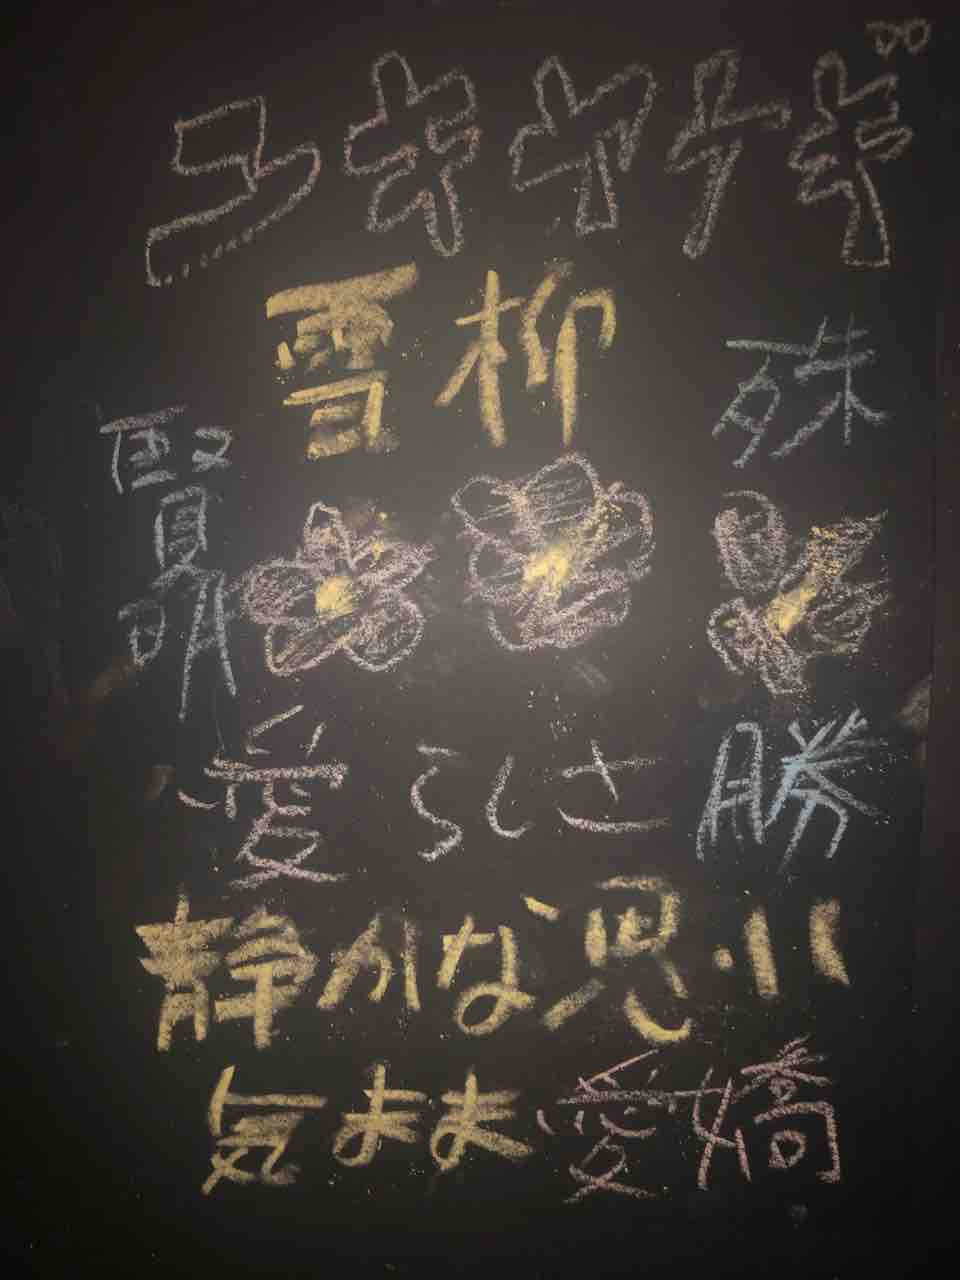 ユキヤナギ
雪柳
殊勝
賢明
愛らしさ
静かな思い
気まま 愛嬌